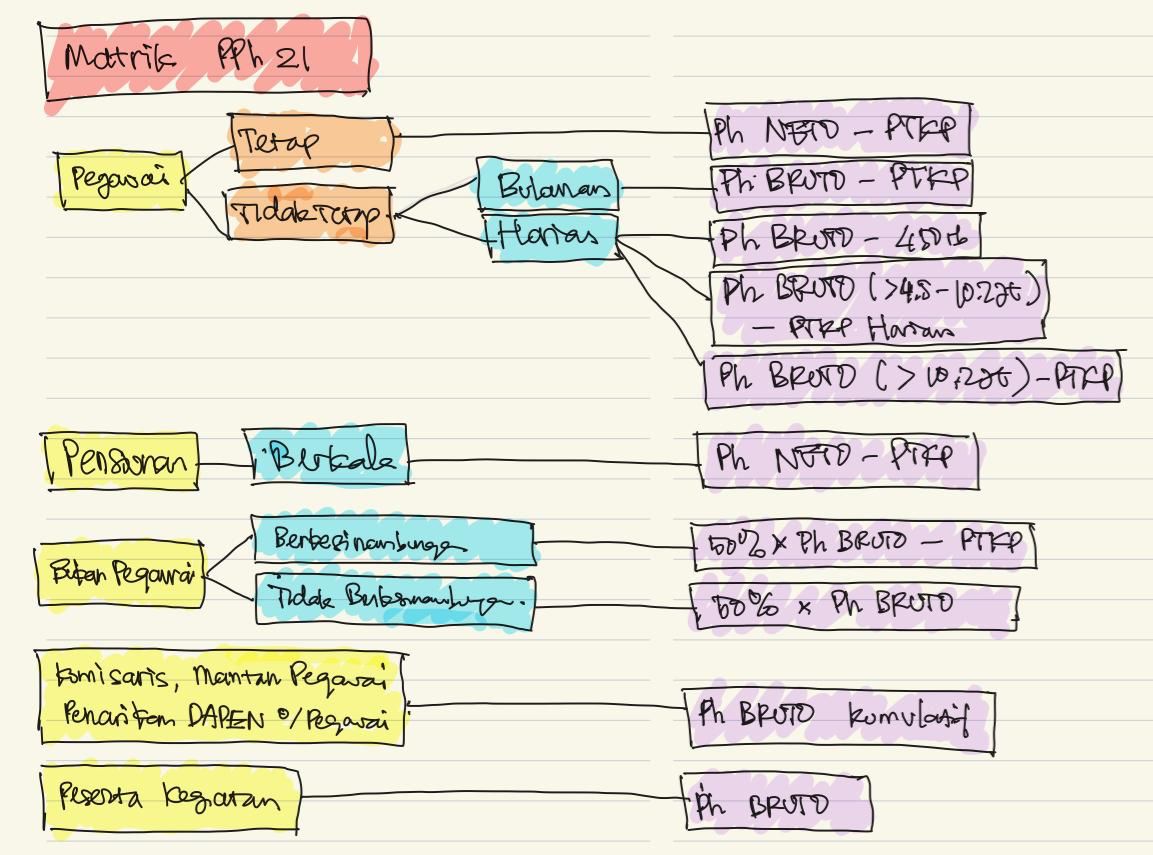 Matrik PPh 21
Pegawai
Tetap
Ph NETO - PTKP
Tidak Tetap
Bulanan
Ph BRUTO - PTKP
Harian
Ph BRUTO - 450rb
Ph BRUTO (>4.5-10.2jt)
- PTKP Harian
Ph BRUTO (>10.2jt) - PTKP
Pensiunan
Berkala
Ph NETO - PTKP
Bukan Pegawai
Berkesinambungan
50% x Ph BRUTO - PTKP
Tidak Berkesinambungan.
50% x Ph BRUTO
Komisaris, Mantan Pegawai
Penarikan DAPEN o/Pegawai
Ph BRUTO kumulatif
Peserta Kegiatan
Ph BRUTO